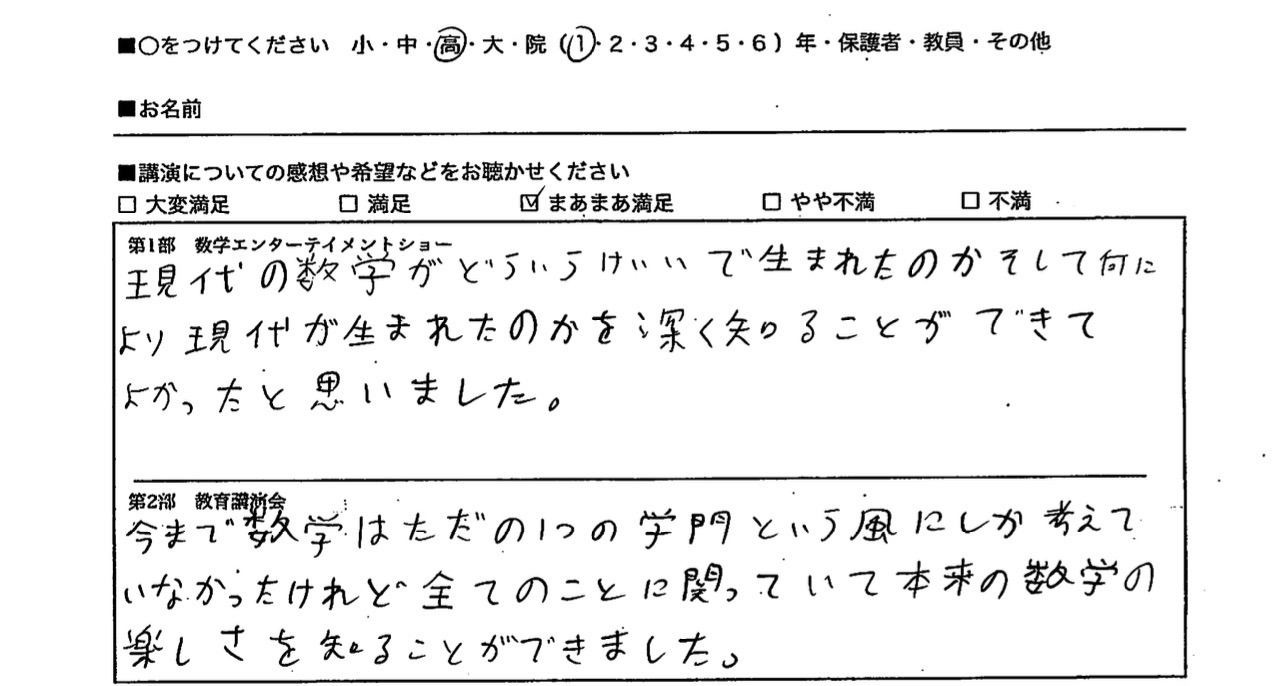 ■○をつけてください 小・中・高・大・院（1・2・3・4・5・6）年・保護者・教員・その他
■お名前
■講演についての感想や希望などをお聴かせください
□ 大変満足 □ 満足 ☑ まあまあ満足 □ やや不満 □ 不満
第1部 数学エンターテイメントショー
現代の数学がどういうけいいで生まれたのかそして何に
より現代が生まれたのかを深く知ることができて
よかったと思いました。
第2部 教育講演会
今まで数学はただの1つの学門という風にしか考えて
いなかったけれど全てのことに関っていて本来の数学の
楽しさを知ることができました。